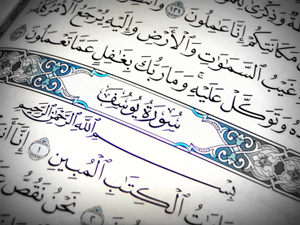 وَذِكْرَىٰ
مَكَانَتِكُمْ إِنَّا عَٰمِلُونَ
غَيْبُ ٱلسَّمَٰوَٰتِ وَٱلْأَرْضِ وَإِلَيْهِ يُرْجَعُ ٱلْأَمْرُ كُلُّهُۥ
وَتَوَكَّلْ عَلَيْهِ وَمَا رَبُّكَ بِغَٰفِلٍ عَمَّا تَعْمَلُونَ
سُورَةُ يُوسُفَ
بِسْمِ ٱللَّهِ ٱلرَّحْمَٰنِ ٱلرَّحِيمِ
ٱلْكِتَٰبِ ٱلْمُبِينِ ١ إِنَّآ
نَحْنُ نَقُصُّ